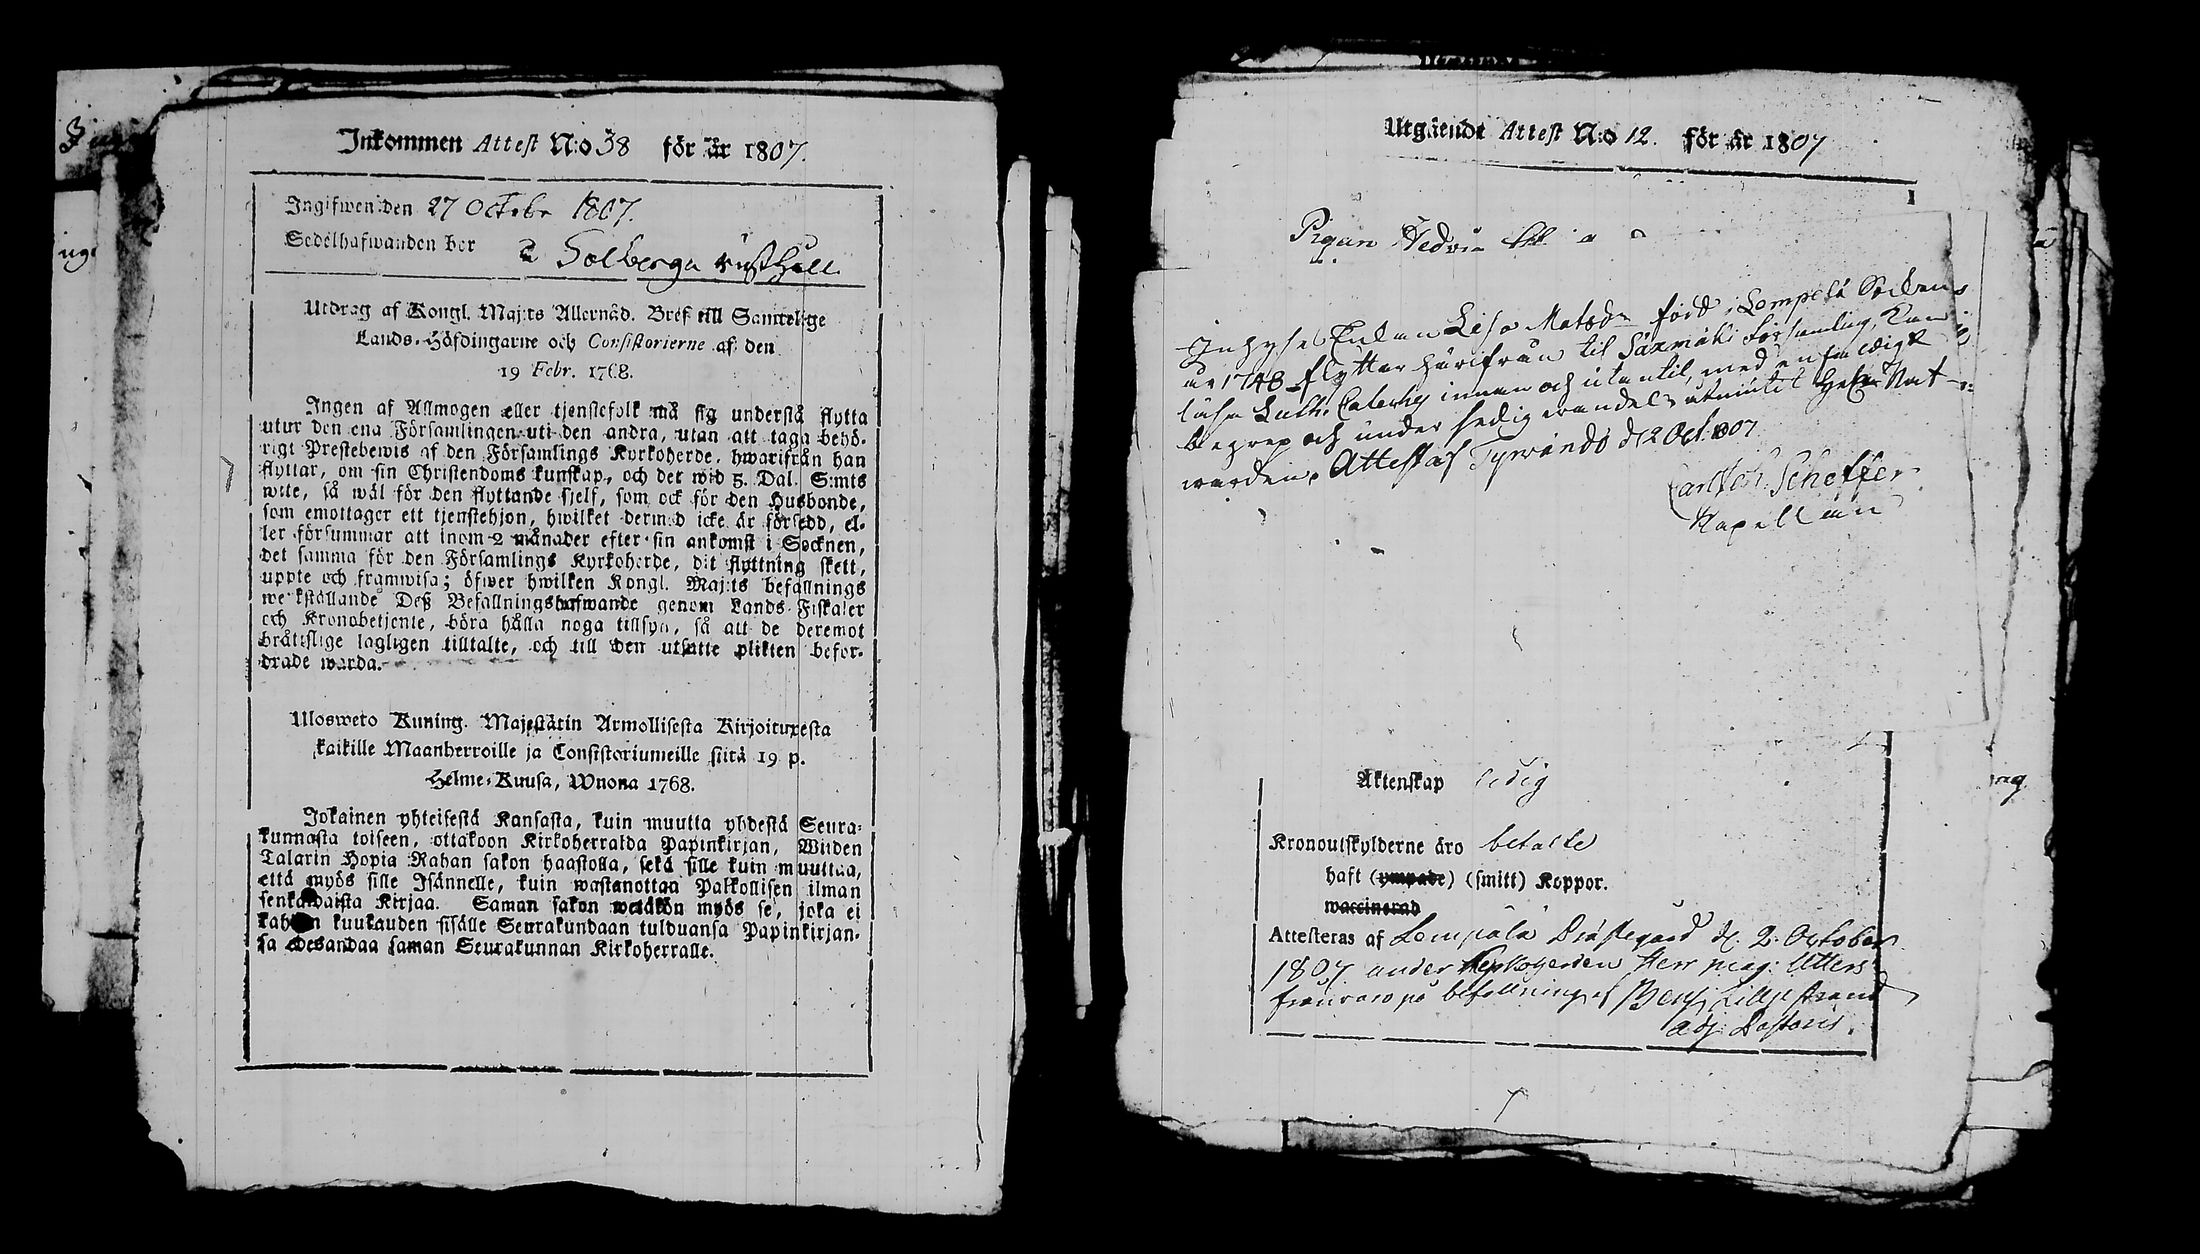 Inkommen Attest N:o 38 för år 1807.
Ingifwen den 27 Octobr 1807.
Sedelhafwanden bor å Solberga rusthåll
Utdrag af Kongl. Maj:ts Allernåd. Bref till Samtelige
Lands-Höfdingarne och Consistorierne af den
19 Febr. 1768.
Ingen af Allmogen eller tjenstefolk må sig understå flytta
utur den ena Församlingen uti den andra, utan att taga behö-
rigt Prestebewis af den Församlings Kyrkoherde, hwarifrån han
flyttar, om sin Christendoms kunskap, och det wid 5. Dal. S:mts
wite, så wäl för den flyttande sjelf, som ock för den Husbonde,
som emottager ett tjenstehjon, hwilket dermed icke är försedd, el-
ler försummar att inom 2 månader efter sin ankomst i Socknen,
det samma för den Församlings Kyrkoherde, dit flyttning skett,
uppte och framwisa; öfwer hwilken Kongl. Maj:ts befallnings
werkställande Deß Befallningshafwande genom Lands-Fiskaler
och Kronobetjente, böra hålla noga tillsyn, så att de deremot
bråttslige lagligen tilltalte, och till den utsatte plikten befor-
drade warda.
Ulosweto Kuning. Majestätin Armollisesta Kirjoituxesta
kaikille Maanherroille ja Consistoriumeille siitä 19 p.
Helme-Kuusa, Wuona 1768.
Jokainen yhteisestä Kansasta, kuin muutta yhdestä Seura-
kunnasta toiseen, ottakoon Kirkoherralda Papinkirjan, Wiiden
Talarin Hopia Rahan sakon haastolla, sekä sille kuin muuttaa,
että myös sille Isännelle, kuin wastanottaa Palkollisen ilman
senkaldaista Kirjaa. Saman sakon wetäkön myös se, joka ei
kahden kuukauden sisälle Seurakundaan tulduansa Papinkirjan-
sa edesandaa saman Seurakunnan Kirkoherralle.
Utgående Attest N:o 12. för år 1807
1
Pigan Hedvig
Inhyses Enkan Lisa Matsdr född i Lempälä Sockens
år 1748 flyttar härifrån til Säxmäki Församling, Kan
läsa Luth. Catechs innan och utantil, med enfaldigt
begrep och under sedig wandel utmintet H
warden. Attest af Tyrwändö d 2 Oct. 1807
Carl Joh. Scheffer
Kapellan
Äktenskap ledig
Kronoutskylderne äro betalte
haft (ympade) (smitt) Koppor.
waccinerad
Attesteras af Lempälä Prästegård d. 2 October
1807 under Kyrkoherden Herr Mag: Utters
frånvaro på befallning af Benj. Lilljestrand
adj. Pastoris.